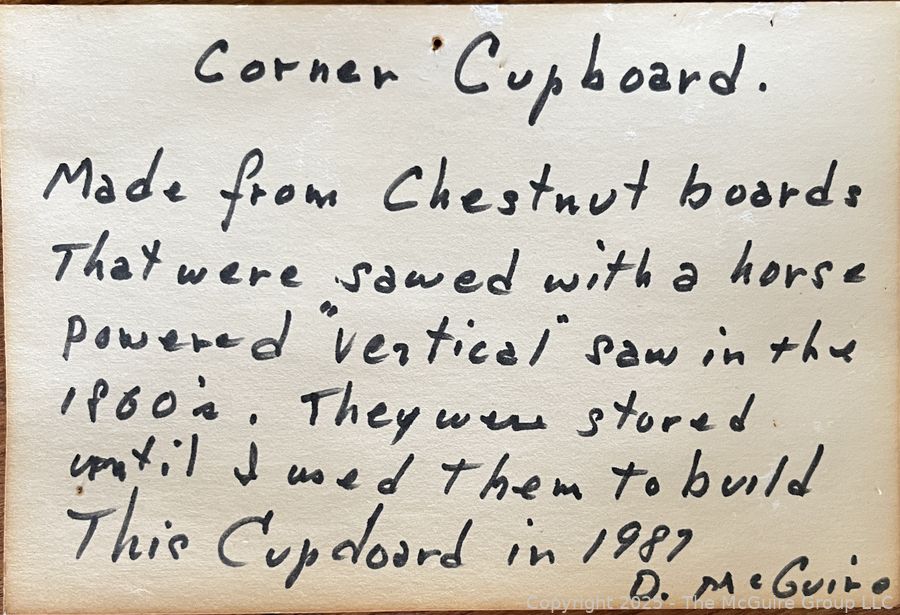 Corner Cupboard.
Made from Chestnut boards
That were sawed with a horse
Powered "Vertical" saw in the
1860's. They were stored
until I used them to build
This Cupdoard in 1987
D. McGuire
Copyright 2025 - The McGuire Group LLC